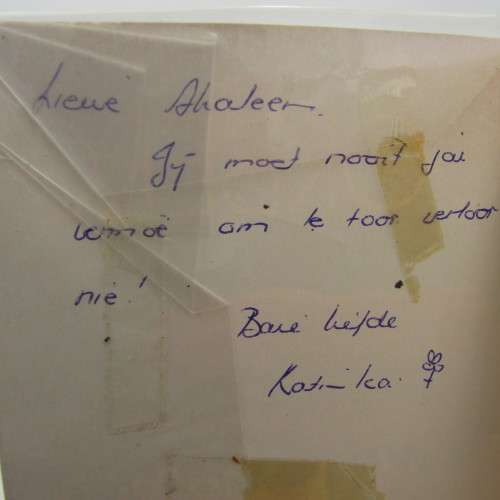 Liewe Ahaleen.
Jy moet nooit jou
vermoë om te toor verloor
nie!
Baie liefde
Katinka.